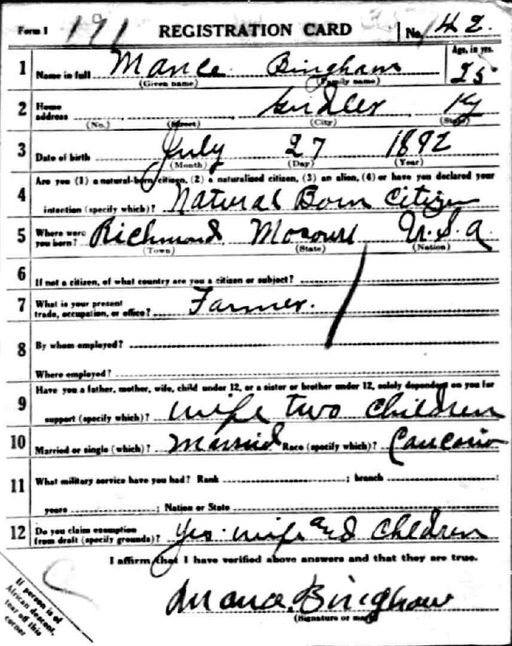 Form 1 171 REGISTRATION CARD No. 42.
1 Name in full Mance Bingham Age, in yrs. 25
(Given name) (Family name)
2 Home address Gridler Ky
(No.) (Street) (City) (State)
3 Date of birth July 27 1892
(Month) (Day) (Year)
4 Are you (1) a natural-born citizen, (2) a naturalized citizen, (3) an alien, (4) or have you declared your
intention (specify which)? Natural Born Citizen
5 Where were you born? Richmond Mosouri U.S.A
(Town) (State) (Nation)
6 If not a citizen, of what country are you a citizen or subject?
7 What is your present trade, occupation, or office? Farmer.
8 By whom employed?
Where employed?
9 Have you a father, mother, wife, child under 12, or a sister or brother under 12, solely dependent on you for
support (specify which)? wife two children
10 Married or single (which)? Married Race (specify which)? Caucasian
11 What military service have you had? Rank ; branch
years ; Nation or State
12 Do you claim exemption from draft (specify grounds)? Yes. wife and children
I affirm that I have verified above answers and that they are true.
Mance Bingham
(Signature or mark)
If person is of
African descent,
tear off this
corner